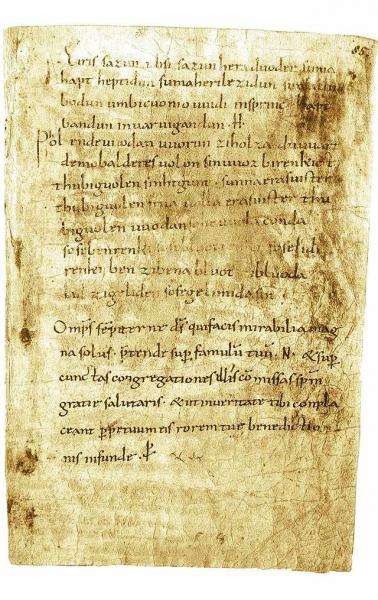 85
Eiris sazun idisi sazun heraduoder suma
hapt heptidun sumaherilezidun sumaclu
bodun umbicuoniouuidi insprinc hapt
bandun inuar uigandun· H·
Phol endeuuodan uuorun ziholza du uuart
demobalderes uolon sinuuoz birenkict
thubiguolen sinhtgunt · sunnaerasuister
thubiguolen friia uolla erasuister thu
biguolen uuodan sohe uuola conda
sosebenrenki sose bluotrenki soselidi
renki ben zibena bluot zibluoda
lid zigeliden sosegelimida sin
Omp̄s sēpiterne d̄s quifacis mirabilia mag
na solus · p̄tende sup̄ famulū tuū · N · & sup̄
cunctas congregationes illis cōmissas sp̄m
gratię salutaris · & ut inueritate tibi conpla
ceant p̄petuum eis rorem tuę benedictio
nis infunde · p̄